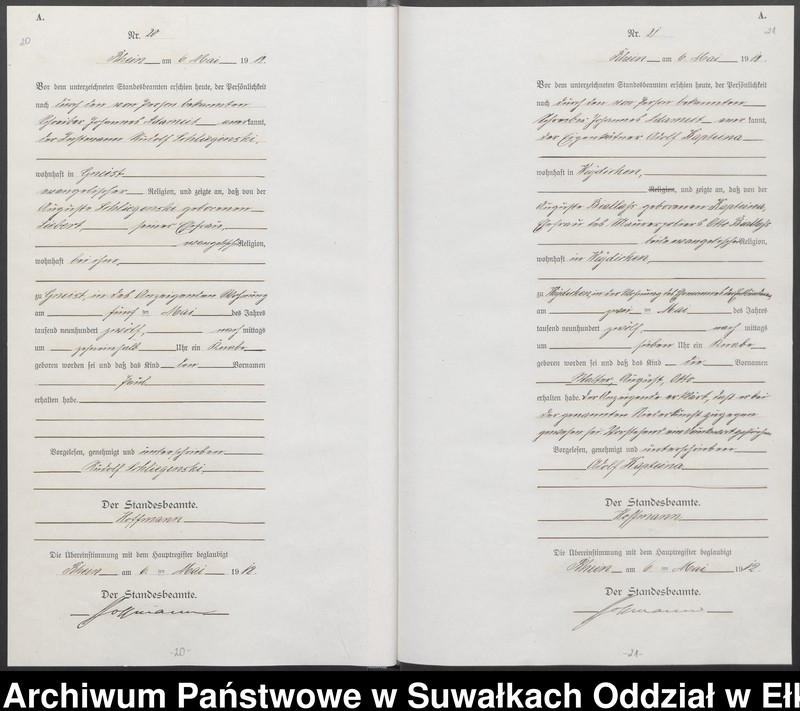 A.
20
Nr. 20
Rhein am 6 Mai 1912.
Vor dem unterzeichneten Standesbeamten erschien heute, der Persönlichkeit
nach durch den von Person bekannten
Schreiber Johannes Adameit anerkannt,
der Instmann Rudolf Schliezenski,
wohnhaft in Gneist
evangelischer Religion, und zeigte an, daß von der
Auguste Schliezenski geborenen
seiner Ehefrau,
evangelischer Religion,
wohnhaft bei ihm,
zu Gneist, in des Anzeigenden Wohnung
am fünf ten Mai des Jahres
tausend neunhundert zwölf, nach mittags
um Uhr ein Knabe
geboren worden sei und daß das Kind den Vornamen
Paul
erhalten habe.
Vorgelesen, genehmigt und unterschrieben
Rudolf Schliezenski
Der Standesbeamte.
Hoffmann
Die Übereinstimmung mit dem Hauptregister beglaubigt
Rhein am 6. ten Mai 1912.
Der Standesbeamte.
Hoffmann
-20-
A.
21
Nr. 21
Rhein am 6 Mai 1912.
Vor dem unterzeichneten Standesbeamten erschien heute, der Persönlichkeit
nach durch den von Person bekannten
Schreiber Johannes Adameit anerkannt,
der Eigenkätner Adolf Kapteina
wohnhaft in Weydicken,
Religion, und zeigte an, daß von der
Auguste geborenen Kapteina,
Ehefrau des Maurerpoliers Otto
beide evangelischer Religion,
wohnhaft in Weydicken,
zu Weydicken, in der Wohnung des
am zwei ten Mai des Jahres
tausend neunhundert zwölf, nach mittags
um sieben Uhr ein Knabe
geboren worden sei und daß das Kind die Vornamen
Walter, August, Otto
erhalten habe. Der Anzeigende erklärt, daß er bei
der genannten Niederkunft zugegen
gewesen sei.
Vorgelesen, genehmigt und unterschrieben
Adolf Kapteina
Der Standesbeamte.
Hoffmann
Die Übereinstimmung mit dem Hauptregister beglaubigt
Rhein am 6 ten Mai 1912.
Der Standesbeamte.
Hoffmann
-21-
Archiwum Państwowe w Suwałkach Oddział w Ełk